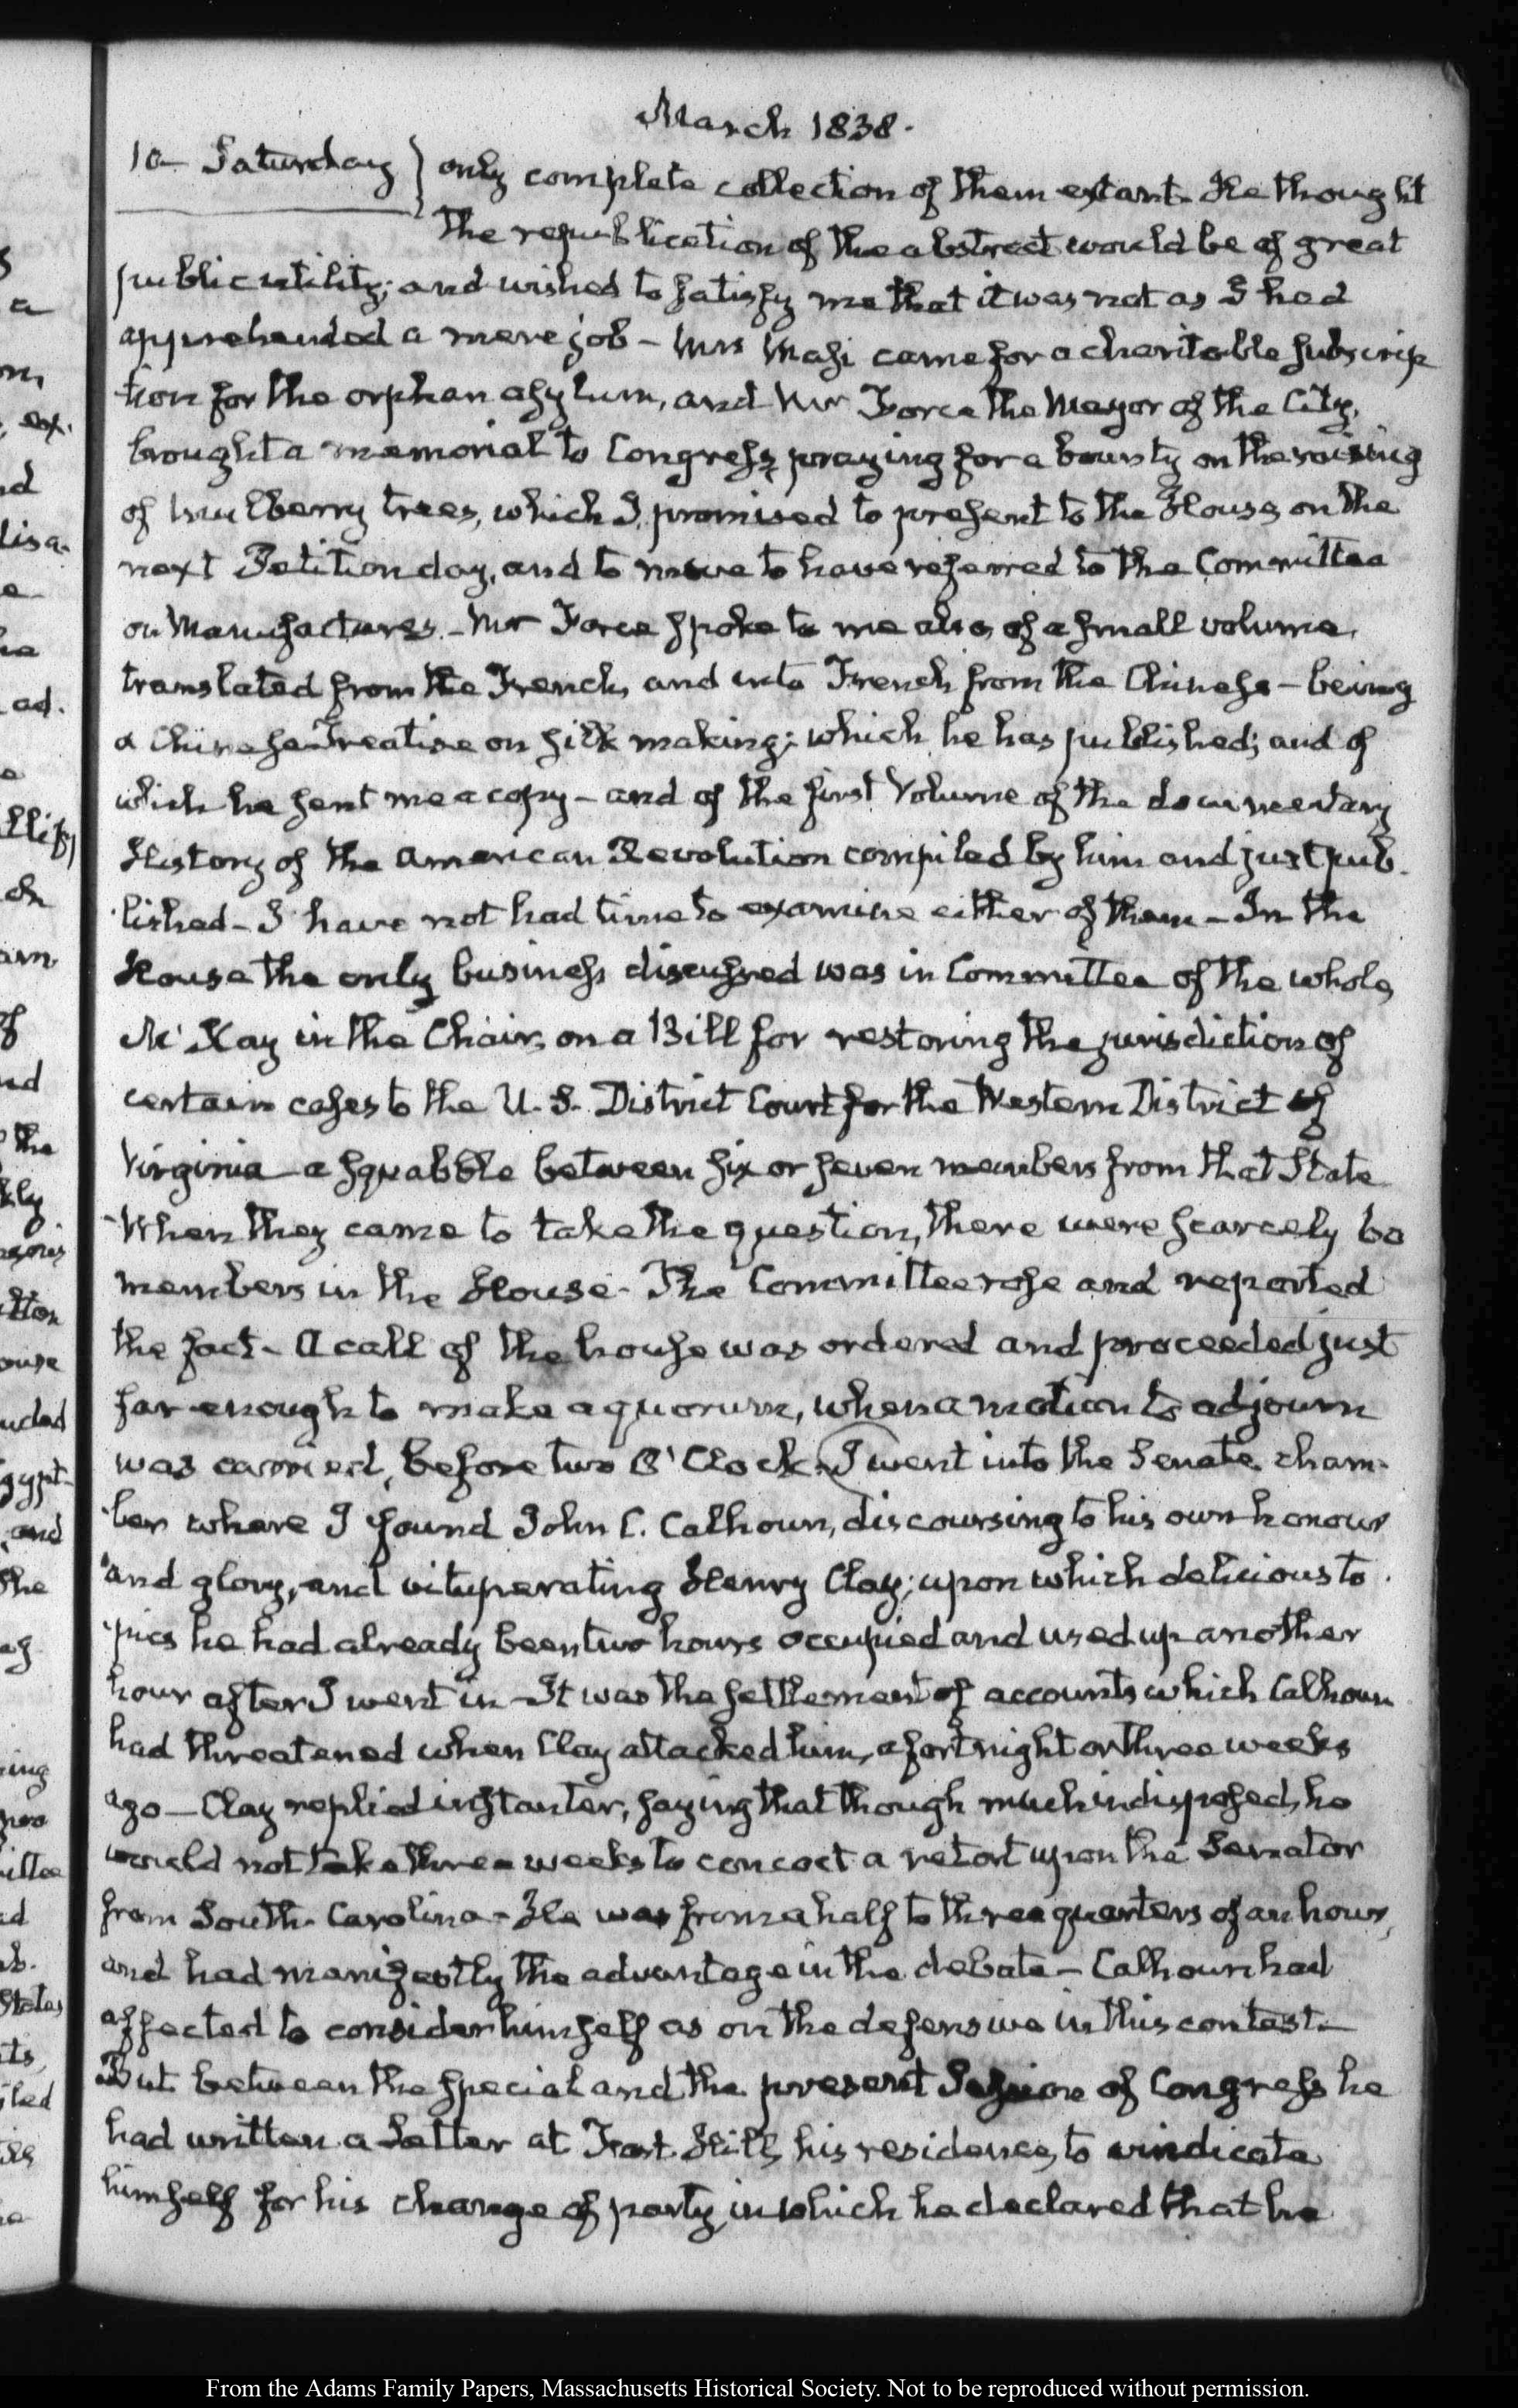 March 1838.
10 Saturday } only complete collection of them extant. He thought
the republication of the abstract would be of great
public utility; and wished to satisfy me that it was not as I had
apprehended a mere job — Mrs came for a charitable subscrip
tion for the orphan asylum, and Mr Force the Mayor of the City,
brought a memorial to Congress, praying for a bounty on the raising
of mulberry trees, which I promised to present to the House, on the
next Petition day, and to move to have referred to the Committee
on Manufactures. — Mr Force spoke to me also, of a small volume,
translated from the French, and into French from the Chinese — being
a Chinese Treatise on silk making; which he has published; and of
which he sent me a copy — and of the first Volume of the documentary
History of the American Revolution compiled by him and just pub-
lished — I have not had time to examine either of them — In the
House the only business discussed was in Committee of the whole,
McKay in the Chair, on a Bill for restoring the jurisdiction of
certain cases to the U. S. District Court for the Western District of
Virginia — a squabble between six or seven members from that State
When they came to take the question, there were scarcely 60
members in the House. The Committee rose and reported
the fact — A call of the house was ordered and proceeded just
far enough to make a quorum, when a motion to adjourn
was carried, before two O'Clock. I went into the Senate cham-
ber where I found John C. Calhoun, discoursing to his own honour
and glory, and vituperating Henry Clay; upon which delicious to-
pics he had already been two hours occupied and used up another
hour after I went in — It was the settlement of accounts which Calhoun
had threatened when Clay attacked him, a fortnight or three weeks
ago — Clay replied instanter, saying that though much indisposed, he
would not take three weeks to concoct a retort upon the Senator
from South-Carolina — He was from a half to three quarters of an hour,
and had manifestly the advantage in the debate — Calhoun had
affected to consider himself as on the defensive in this contest. —
But between the special and the present Session of Congress he
had written a Letter at Fort-Hill, his residence, to vindicate
himself for his change of party, in which he declared that he
From the Adams Family Papers, Massachusetts Historical Society. Not to be reproduced without permission.